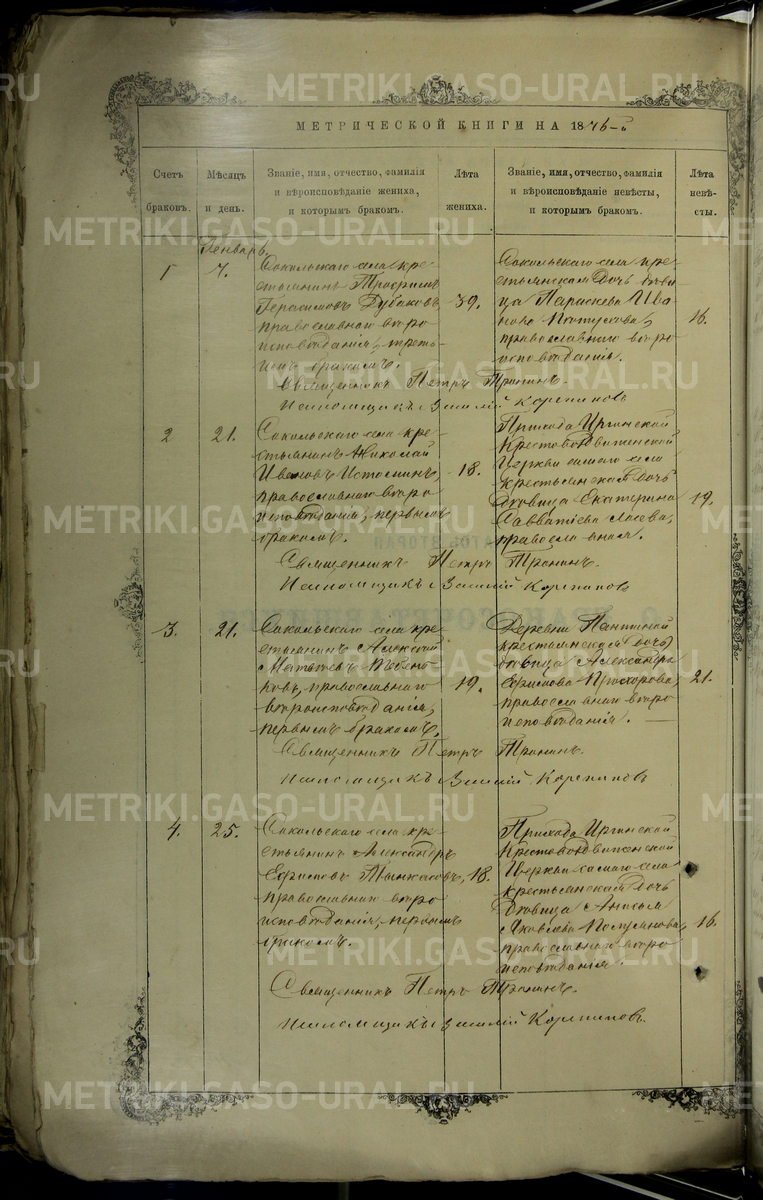 МЕТРИЧЕСКОЙ КНИГИ НА 1876-й
Счетъ браковъ.
Мѣсяцъ и день.
Званіе, имя, отчество, фамилія
и вѣроисповѣданіе жениха,
и которымъ бракомъ.
Лѣта жениха.
Званіе, имя, отчество, фамилія
и вѣроисповѣданіе невѣсты,
и которымъ бракомъ.
Лѣта невѣ-
сты.
Генварь
1
7.
Сокольскаго села кре-
стьянинъ Трофимъ
Герасимовъ Дубаковъ,
православнаго вѣро
исповѣданія, треть-
имъ бракомъ.
39.
Сокольскаго села кре-
стьянская дочь дѣви-
ца Параскева Ива-
нова
православнаго вѣро
исповѣданія.
16.
Священникъ Петръ Тронинъ.
Псаломщикъ Василій Корепановъ
2
21.
Сокольскаго села кре-
стьянинъ Николай
Ивановъ Истоминъ,
православнаго вѣро
исповѣданія, первымъ
бракомъ.
18.
Прихода Иргинской
Крестовоздвиженской
Церкви самаго села
крестьянская дочь
дѣвица Екатерина
Савватіева
православная.
19.
Священникъ Петръ Тронинъ.
Псаломщикъ Василій Корепановъ
3.
21.
Сокольскаго села кре-
стьянинъ Алексѣй
Матвѣевъ
православнаго
вѣроисповѣданія,
первымъ бракомъ.
19.
Деревни
крестьянская дочь
дѣвица Александра
Ефимова Прохорова,
православнаго вѣро
исповѣданія.
21.
Священникъ Петръ Тронинъ.
Псаломщикъ Василій Корепановъ
4.
25.
Сокольскаго села кре-
стьянинъ Александръ
Ефимовъ
православнаго вѣро
исповѣданія, первымъ
бракомъ.
18.
Прихода Иргинской
Крестовоздвиженской
Церкви самаго села
крестьянская дочь
дѣвица Анисья
Яковлева
православнаго вѣро
исповѣданія.
16.
Священникъ Петръ Тронинъ.
Псаломщикъ Василій Корепановъ.
METRIKI.GASO-URAL.RU